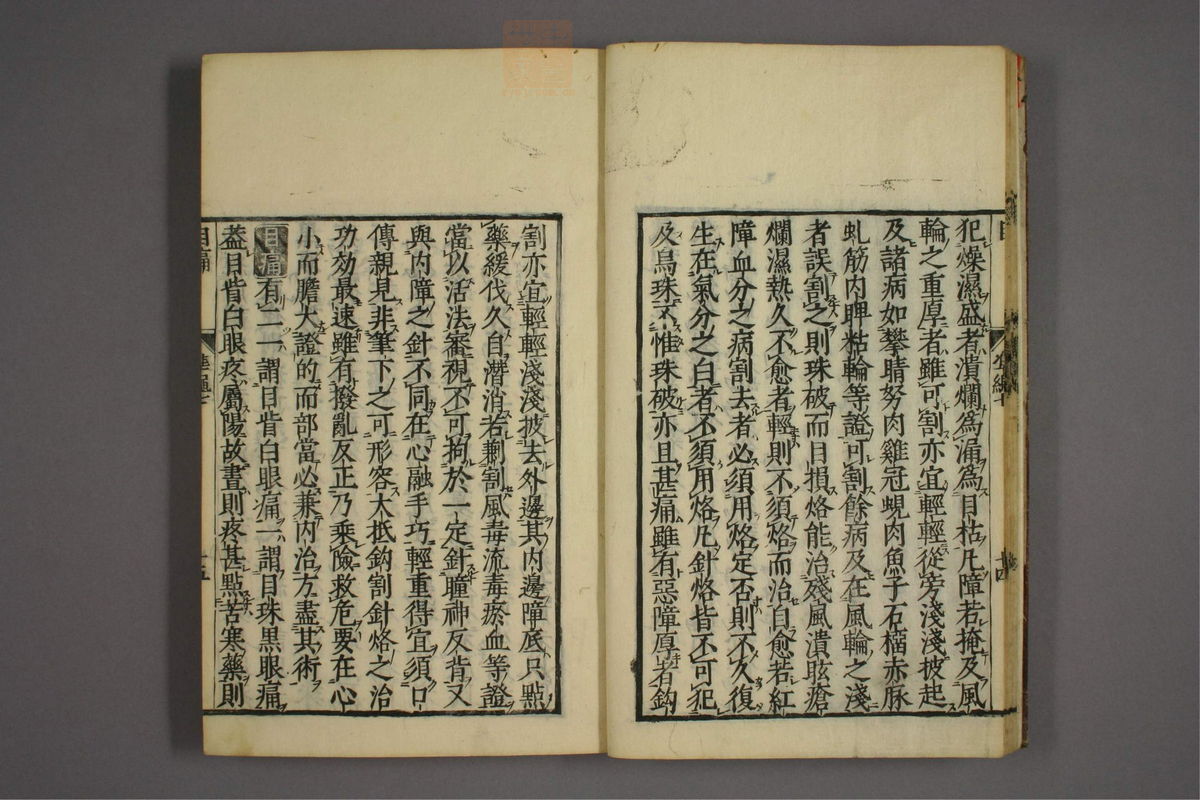 犯燥濕盛者潰爛爲漏爲目枯凡障若掩及風
輪之重厚者雖可割亦宜輕輕從旁淺淺披起
及諸病如攀睛努肉雞冠蜆肉魚子石榴赤脉
虬筋内睥粘輪等證可割餘病及在風輪之淺
者誤割之則珠破而目損烙能治殘風潰眩瘡
爛濕熱久不愈者輕則不須烙而治自愈若紅
障血分之病割去者必須用烙定否則不久復
生在氣分之白者不須用烙凡針烙皆不可犯
及烏珠不惟珠破亦且甚痛雖有惡障厚者鈎
割亦宜輕輕淺淺披去外邊其内邊障底只點
藥緩伐久自潛消若剿割風毒流毒瘀血等證
當以活法審視不可拘於一定針瞳神反背又
與内障之針不同在心融手巧輕重得宜須口
傳親見非筆下之可形容大抵鈎割針烙之治
功効最速雖有撥亂反正乃乘險救危要在心
小而膽大證的而部當必兼内治方盡其術
目痛有二一謂目眥白眼痛一謂目珠黒眼痛
蓋目眥白眼疼屬陽故晝則疼甚點苦寒藥則
目痛